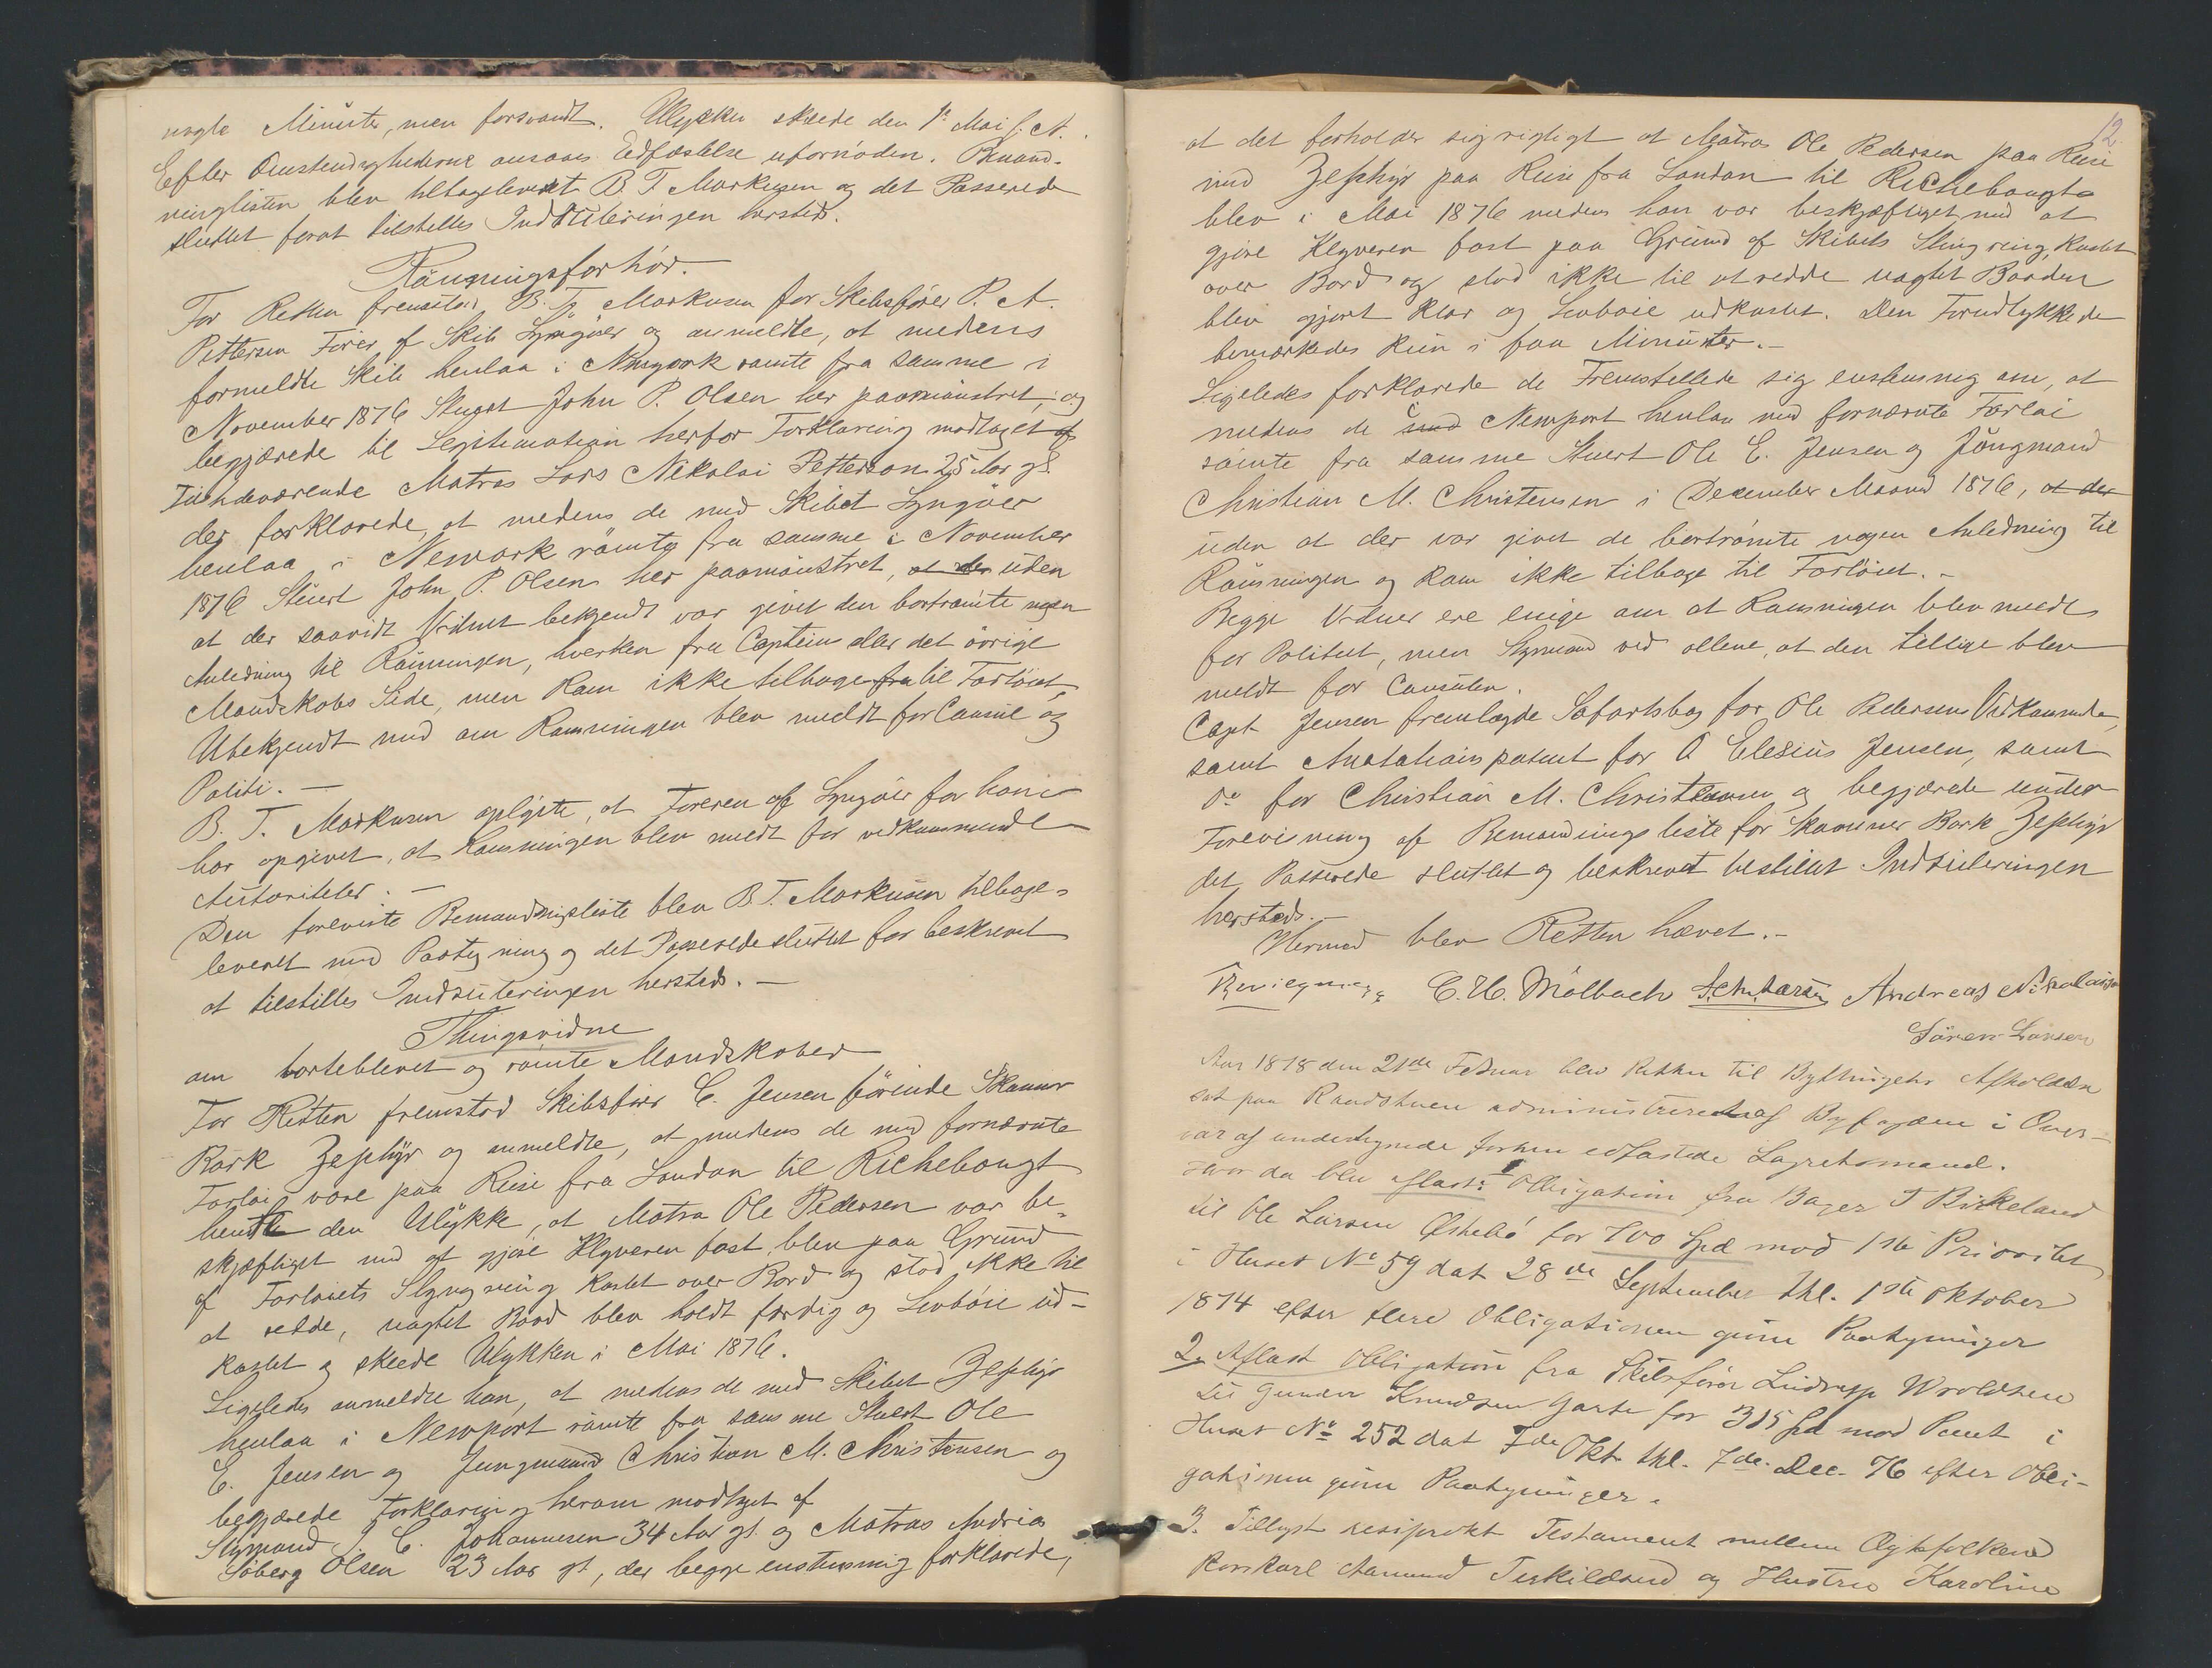 nogle Minuter, men forsvandt. Ulykken skede den 1e Mai f. A.
Efter Omstendighederne ansaaes Edfæstelse ufornöden. Bemand-
ringlisten blev tilbageleveret B. T. Markusen og det Passerede
sluttet forat tilstilles Indrulleringen hersteds.
Römningsforhör.
For Retten fremstod B. T. Markusen for Skibsförer P. A.
Pettersen Förer af Skib Lyngöer og anmeldte, at medens
formeldte Skib henlaa i Newyork römte fra samme i
November 1876 Stuert John P. Olsen her paamönstret, og
begjærede til Legitimation herfor Forklaring modtaget af
Tilstedeværende Matros Lars Nikolai Petterson 25 Aar gl.
der forklarede, at medens de med Skibet Lyngöer
henlaa i Newyork römte fra samme i November
1876 Stuert John P. Olsen her paamönstret, at der uden
at der saavidt Vidnet bekjendt var givet den bortrömte nogen
Anledning til Römningen, hverken fra Capteins eller det övrige
Mandskabs Side, men kom ikke tilbage fra til Fartöiet,
Ubekjendt med om Römningen blev meldt for Consul og
Politi. —
B. T. Markusen oplyste, at Föreren af Lyngöer for ham
har opgivet, at Römningen blev meldt for vedkommende
Autoriteter. —
Den foreviste Bemandringsliste blev B. T. Markusen tilbage-
leveret med Paategning og det Passerede sluttet for beskrevet
at tilstilles Indrulleringen hersteds. —
Thingsvidne
om borteblevet og römte Mandskaber
For Retten fremstod Skibsförer C. Jensen förende Skonner
Bark Zephyr og anmeldte, at medens de med fornævnte
Fartöi vare paa Reise fra London til Richebougt
hendte den Ulykke, at Matros Ole Pedersen var be-
skjæftiget med at gjöre Klyveren fast, blev paa Grund
af Fartöiets Slyngring kastet over Bord og stod ikke til
at redde, uagtet Baad blev holdt færdig og Levböie ud-
kastet og skede Ulykken i Mai 1876.
Ligeledes anmeldte han, at medens de med Skibet Zephyr
henlaa i Newport römte fra samme Stuert Ole
E. Jensen og Jungmand Christian M. Christensen og
begjærede Forklaring herom modtaget af
Styrmand J. C. Johannesen 34 Aar gl. og Matros Andrias
Söberg Olsen 23 Aar gl, der begge enstemmig forklarede,
12
at det forholder sig rigtigt at Matros Ole Pedersen paa Reise
med Zephyr paa Reise fra London til Richebougta
blev i Mai 1876 medens han var beskjæftiget med at
gjöre Klyveren fast paa Grund af Skibets Slingring, kastet
over Bord og stod ikke til at redde uagtet Baaden
blev gjort klar og Levboie udkastet. Den Forulykkede
bemærkedes kun i faa Minuter. —
Ligeledes forklarede de Fremstillede sig enstemmig om, at
medens de med i Newport henlaa med fornævnte Fartöi
römte fra samme Stuert Ole E. Jensen og Jüngmand
Christian M. Christensen i December Maaned 1876, at der
uden at der var givet de bortrömte nogen Anledning til
Römningen og kom ikke tilbage til Fartöiet. —
Begge Vidner ere enige om at Römningen blev meldt
for Politiet, men Styrmand ved allene, at den tillige blev
meldt for Consulen.
Capt Jensen fremlagde Söfartsbog for Ole Pedersens Vedkommende,
samt Anotations patent for O Elesius Jensen, samt
do for Christian M. Christensen og begjærede under
Forevisning af Bemandrings liste for Skonner Bark Zephyr
det Passerede sluttet og beskrevet tilstillet Indrulleringen
hersteds. —
Hermed blev Retten hævet. —
C. H. Mölbach S. Chr. Larsen Andreas Nikolaisen
Sören Larsen
Aar 1878 den 21de Februar blev Retten til Bythinget Afholden
sat paa Raadstuen administreret af Byfogden i Over-
vær af undertegnede forhen edfæstede Lagrettesmænd.
Hvor da blev aflæst: 1 Obligation fra Bager T Birkeland
til Ole Larsen Østebö for 700 Spd mod 1ste Prioritet
i Huset No 59 dat 28de September thl. 1ste Oktober
1874 efter flere Obligationen givne Paategninger
2. Aflæst Obligation fra Skibsförer Lüdvig Wroldsen
til Gunder Knudsen Garta for 315 Spd mod Pant i
Huset No 252 dat 7de Okt. thl. 7de Dec. 76 efter Obli-
gationen givne Paategninger.
3. Tillyst resiprokt Testament mellem Ægtefolkene
Aamund Terkildsen og Hustru Karoline